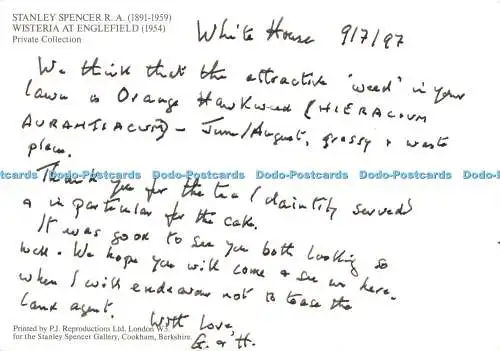 STANLEY SPENCER R.A. (1891-1959)
WISTERIA AT ENGLEFIELD (1954)
Private Collection
White House 9/7/97
We think that the attractive 'weed' in your
lawn is Orange Hawkweed (HIERACIUM
AURANTIACUM) - June/August, grassy & waste
places.
Dodo-Postcards Dodo-Postcards Dodo-Postcards Dodo-Postcards Dodo-Postcards
Thank you for the tea (daintily served)
& in particular for the cake.
It was good to see you both looking so
well. We hope you will come & see us here.
when I will endeavour not to tease the
land agent.
With love,
G. & H.
Printed by P.J. Reproductions Ltd. London W3.
for the Stanley Spencer Gallery, Cookham, Berkshire.